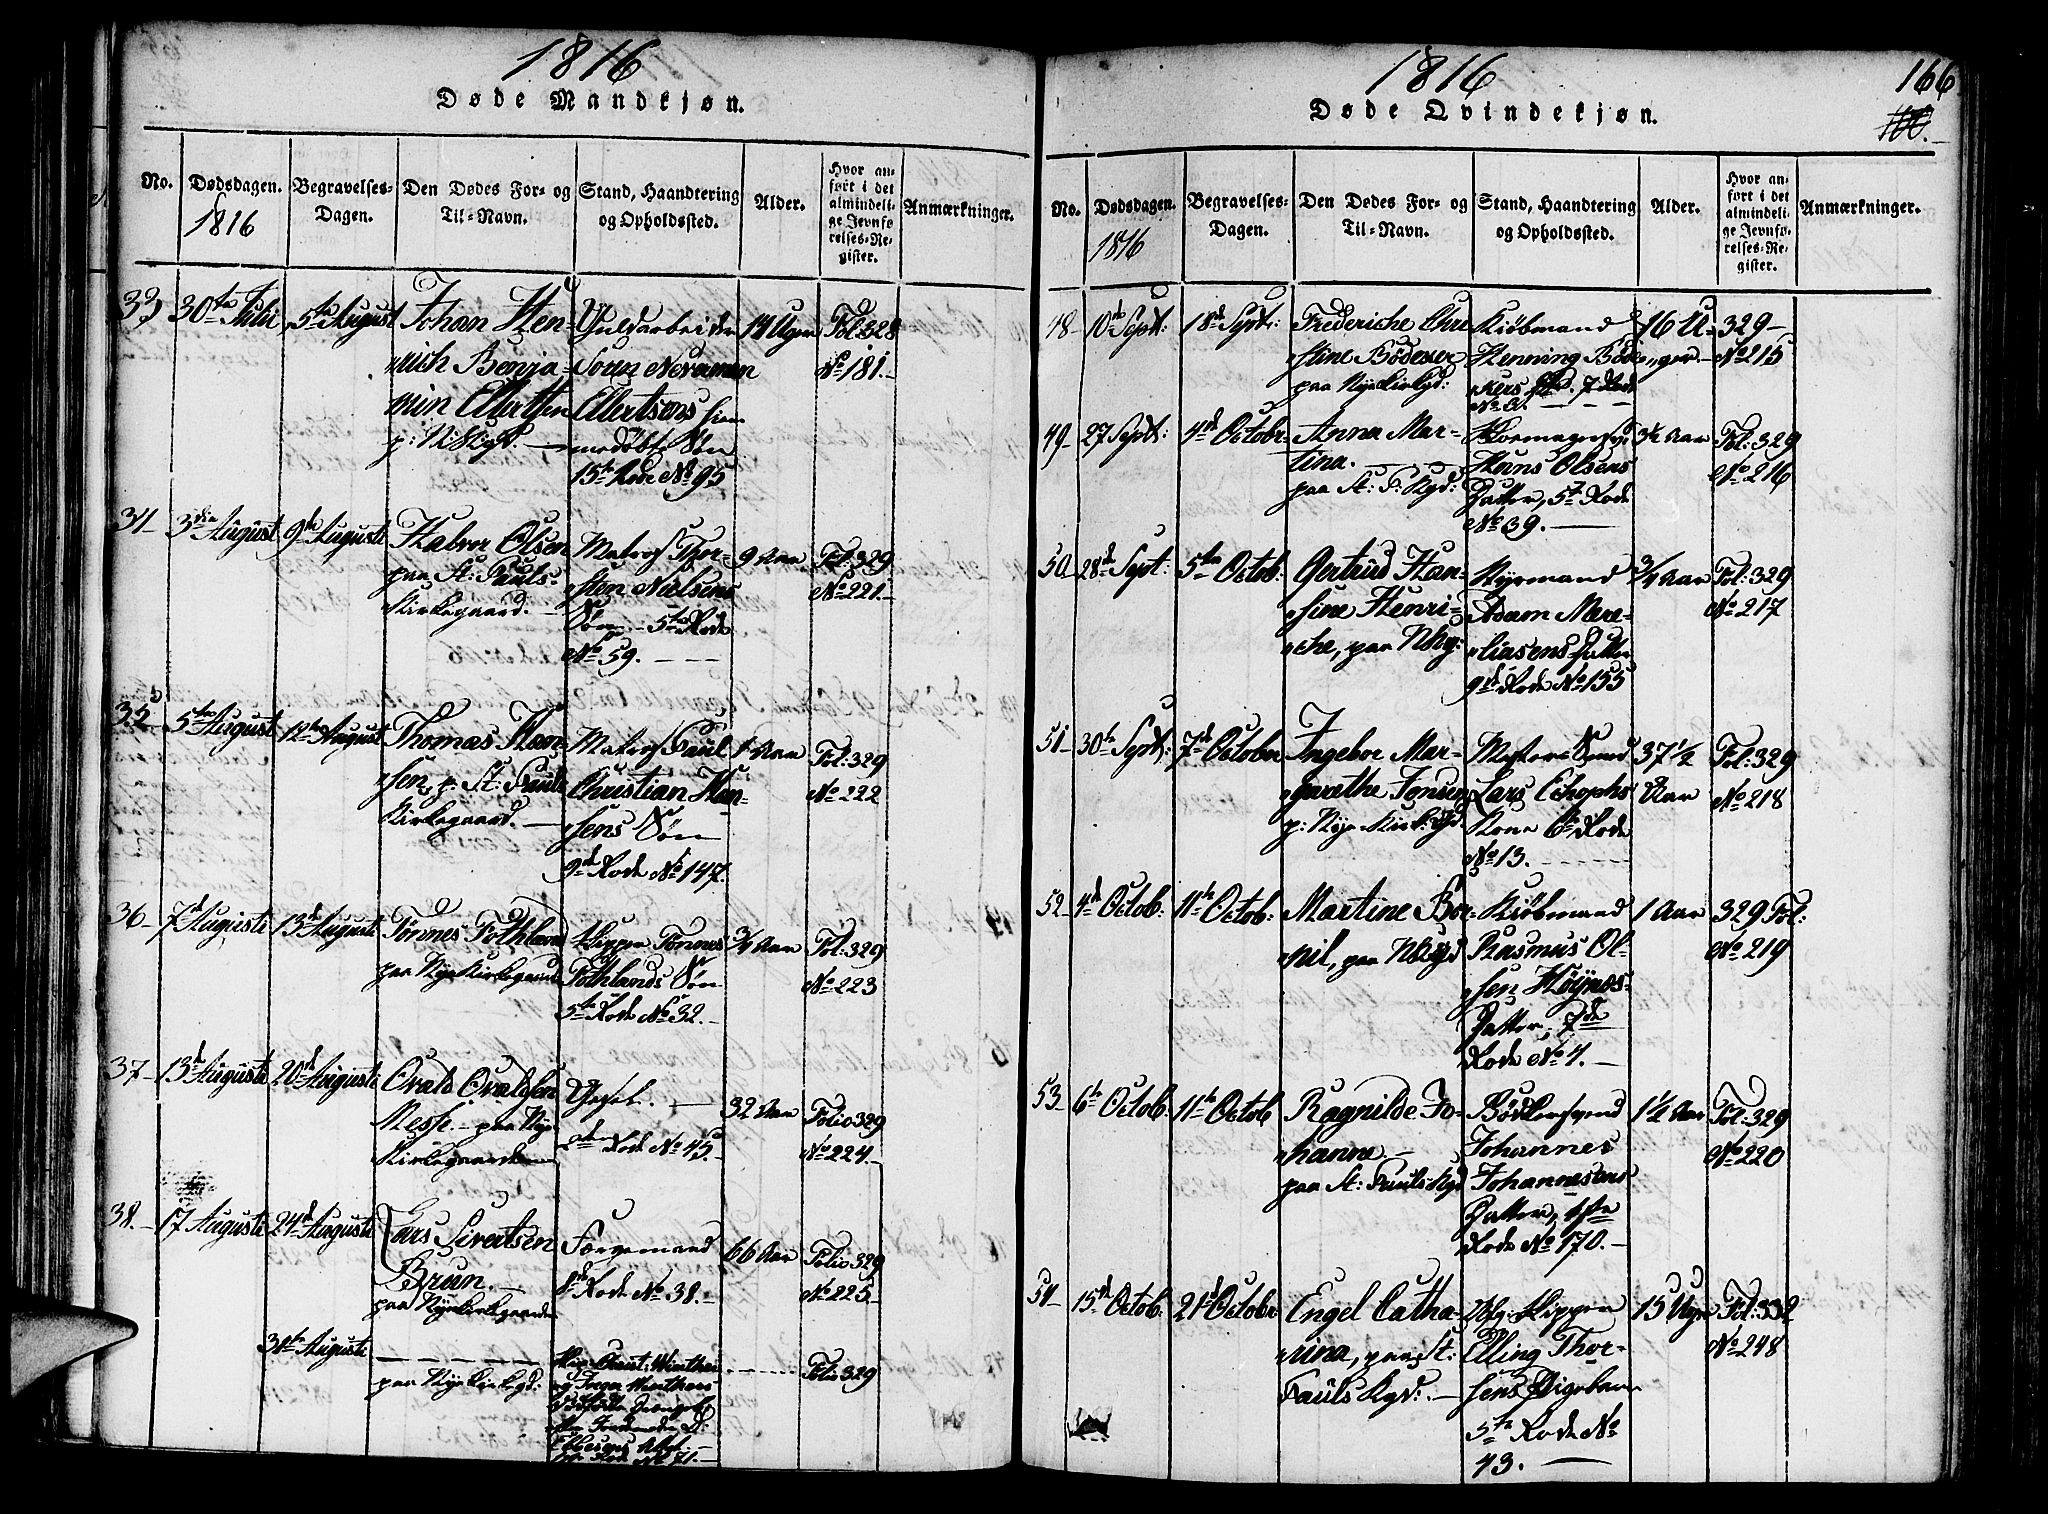 1816
Døde Mandkjøn.
No.
Dødsdagen.
1816
Begravelses-
Dagen.
Den Dødes For- og
Til-Navn.
Stand, Haandtering
og Opholdssted.
Alder.
Hvor an-
ført i det
almindeli-
ge Jevnfø-
relses-Re-
gister.
Anmærkninger.
33
30te Julii
5te August
Johan Hen-
rich Benja-
min Ellertsen
Guldarbeider
Ellertsens
Søn
15de Rode No 95
14 Uger
Fol: 328
No 181.
34
3die August
9de Augusti
Halvor Olsen
paa St: Pauls
Kirkegaard.
Matros Thor-
sten Nielsens
Søn 5te Rode
No 59.
9 Aar
Fol: 329
No 221.
35
5te August
12te August
Thomas Han-
sen, p. St: Pauls
Kirkegaard.
Matros Paul
Christian Han-
sens Søn
9de Rode No 147.
1 Aar
Fol: 329
No 222
36
7d Augusti
13d Augusti
Tönnes Tothland
paa Nye Kirkegaard
Tönnes
Tothlands Søn
5te Rode No 32.
3/4 Aar
Fol: 329
No 223
37
13d Augusti
20d Augusti
Ovald Ovaldsen
Messe. paa Nye
Kirkegaarden
Rode No 45.
32 Aar
Folio 329
No 224
38.
17 Augusti
24d Augusti
Lars Sivertsen
Brun.
paa Nye Kirkegaarden
Færgemand
8de Rode No 38.
66 Aar
Folio 329
No 225
31te Augusti
paa Nye Kirkegd:
Folio 329
1816
Døde Qvindekjøn.
166
100.
No.
Dødsdagen.
1816
Begravelses-
Dagen.
Den Dødes For- og
Til-Navn.
Stand, Haandtering
og Opholdssted.
Alder.
Hvor an-
ført i det
almindeli-
ge Jevnfø-
relses-Re-
gister.
Anmærkninger.
48
10d Sept:
18d Sept:
Frederiche Chri
stine Bödeker
paa Nye Kirkgd:
Kiöbmand
Henning Böde
kers 7 Rode
16 U-
ger.
329
No 215
49
27 Sept:
4d Octobr
Anna Mar-
tina.
paa St: P: Kgd:
Hans Olsens
Datter, 5te Rode
No 39.
Fol: 329
No 216
50
28d Sept:
5te Octob:
Gertrud Han-
sine Henri-
che, paa Nkg:
Styrmand
Adam Mare-
liasens Datter
9d Rode No 155
3/4 Aar
Fol: 329
No 217
51
30te Sept:
7d Octobr
Ingebor Mar-
grethe Jonsen
p: Nye Kirk: gd
Lars
Kone 6te Rode
No 13.
37 1/2
Aar
Fol: 329
No 218
52
4d Octob:
11te Octob:
Martine Bor-
nil, paa Nkgd
Kiöbmand
Rasmus Ol-
sen Höynæs
Datter, 7de
Rode No 4.
1 Aar
329 Fol:
No 219
53
6te Octob:
11te Octob
Ragnilde Jo-
hanne.
paa St: Pauls Kgd
Bödkersvend
Johannes
Johannesens
Datter,
Rode No 170.
1 1/2 Aar
Fol: 329
No 220
54
15d Octob.
21d Octobr
Engel Catha-
rina, paa St:
Pauls Kgd:
Elling Thor-
sens Pigebarn
5te Rode No
43.
15 Uger
Fol: 332
No 248